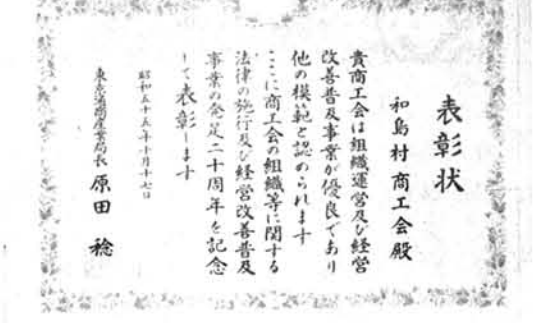 表彰状
和島村商工会殿
貴商工会は組織運営及び経営
改善普及事業が優良であり
他の模範と認められます
ここに商工会の組織等に関する
法律の施行及び経営改善普及
事業の発足二十周年を記念
して表彰します
昭和五十五年十月十七日
東京通商産業局長 原田稔